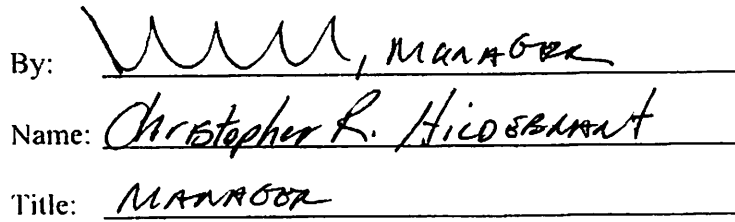 By: , MANAGER
Name: Christopher R. HILDEBRANT
Title: MANAGER